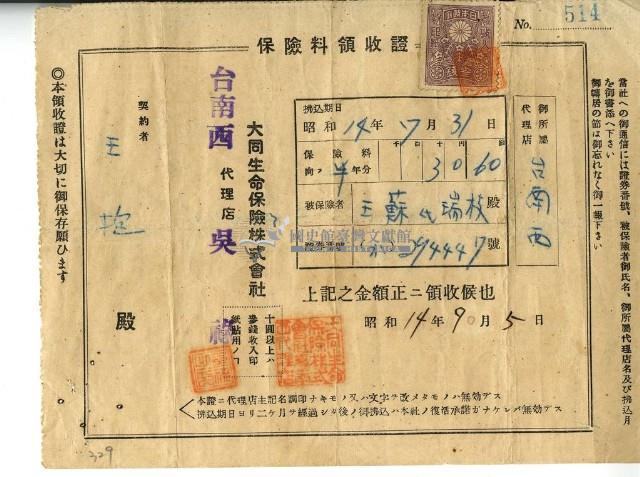 No. 514
保險料領收證
當社への御通信には證券番號、被保險者御氏名、御所屬代理店名及び拂込月
を御書添へ下さい
御轉居の節は御忘れなく御一報下さい
御所屬代理店 台南西
拂込期日
昭和14年7月31日
保險料
向フ半年分
3060
被保險者 王蘇氏瑞枝 殿
證券番號 39444号 號
上記之金額正ニ領收候也
昭和14年9月5日
大同生命保險株式會社
台南西 代理店 吳
十圓以上ハ
參錢收入印
紙貼用ノコ
契約者 王 殿
◎本領收證は大切に御保存願ひます
本證ニ代理店主記名調印ナキモノ又ハ文字ヲ改メタモノハ無効デス
拂込期日ヨリ二ヶ月ヲ經過シタ後ノ御拂込ハ本社ノ復活承諾ガナケレバ無効デス
國史館臺灣文獻館
329